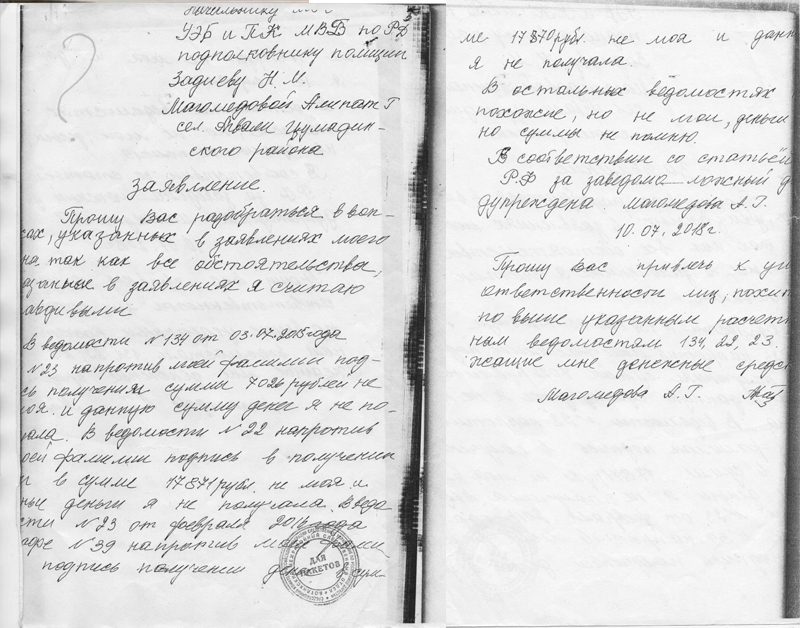 начальнику
УЭБ и ПК МВД по РД
подполковнику полиции
Задиеву Н.М.
Магомедовой Алипат Г
сел. Агвали Цумадин-
ского района
заявление.
Прошу Вас разобраться в воп-
сах, указанных в заявлениях моего
на так как все обстоятельства,
азанные в заявлениях я считаю
авдивыми
В ведомости №134 от 03.07.2015 года
№23 напротив моей фамилии под-
сь получения суммы 7026 рублей не
оя. и данную сумму денег я не по-
чала. В ведомости №22 напротив
оей фамилии подпись в получении
г в сумме 17871 рубл. не моя и
ные деньги я не получала. В ведо
сти №23 от февраля 2016 года
афе №39 напротив моей фами
подпись получении ден сум-
ДЛЯ
ПАКЕТОВ
ме 17870 рубл. не моя и данн
я не получала.
В остальных ведомостях п
похожие, но не мои, деньги
но суммы не помню.
В соответствии со статьёй
Р.Ф за заведома ложный д
дупреждена. Магомедова А.Г.
10.07.2018г.
Прошу Вас привлечь к уго
ответственности лиц, похит
по выше указанным расчетн
ным ведомостям 134, 22, 23.
жащие мне денежные средс
Магомедова А.Г.